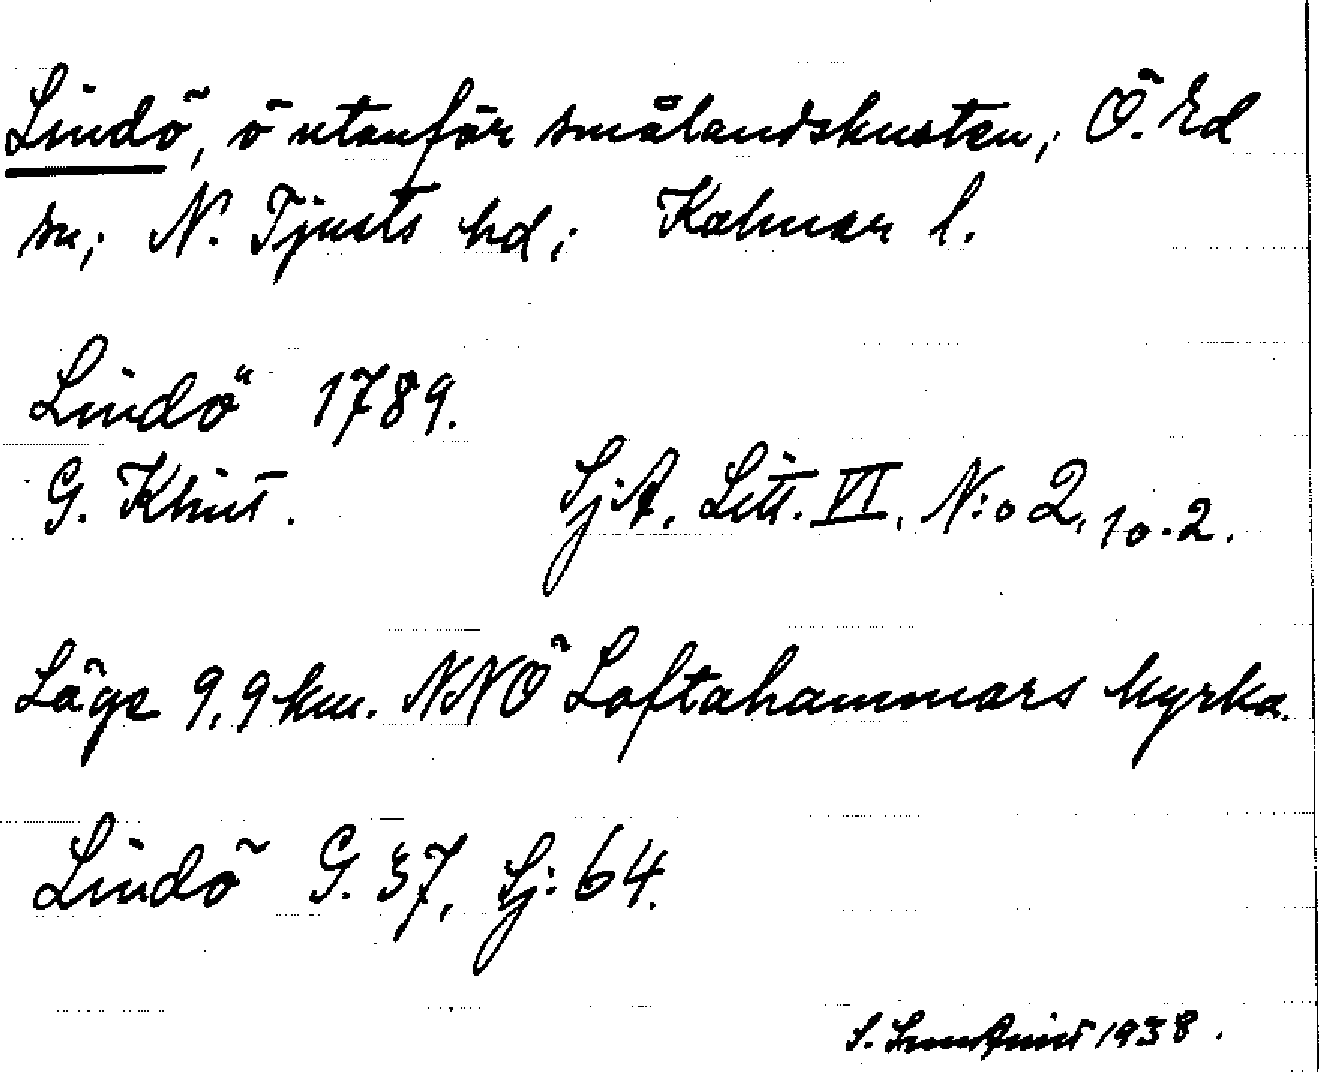 Lindö, ö utanför smålandskusten; Ö. Ed
sn; N. Tjusts hd; Kalmar l.
Lindö 1789.
G. Klint. Sj:A. Litt. VI. N:o 2, 10.2.
Läge 9,9 km. NNÖ Loftahammars kyrka.
Lindö G. 37, Sj: 64.
S. 1938.